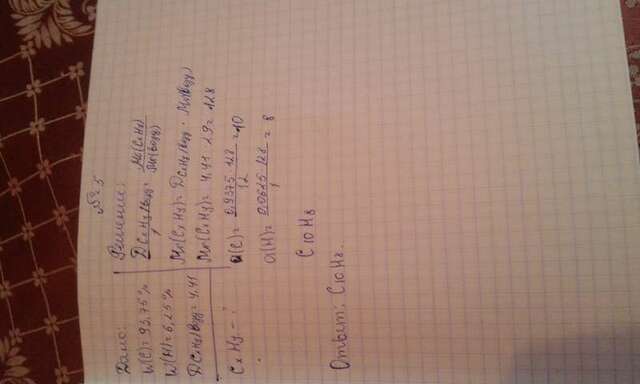 № 5
Дано:
W(C) = 93,75%
W(H) = 6,25%
DCxHy/возд = 4,41
CxHy - ?
Решение:
DCxHy/возд = Mr(CxHy) / Mr(возд)
Mr(CxHy) = DCxHy/возд · Mr(возд)
Mr(CxHy) = 4,41 · 29 = 128
n(C) = 0,9375 · 128 / 12 = 10
n(H) = 0,0625 · 128 / 1 = 8
C10H8
Ответ: C10H8.